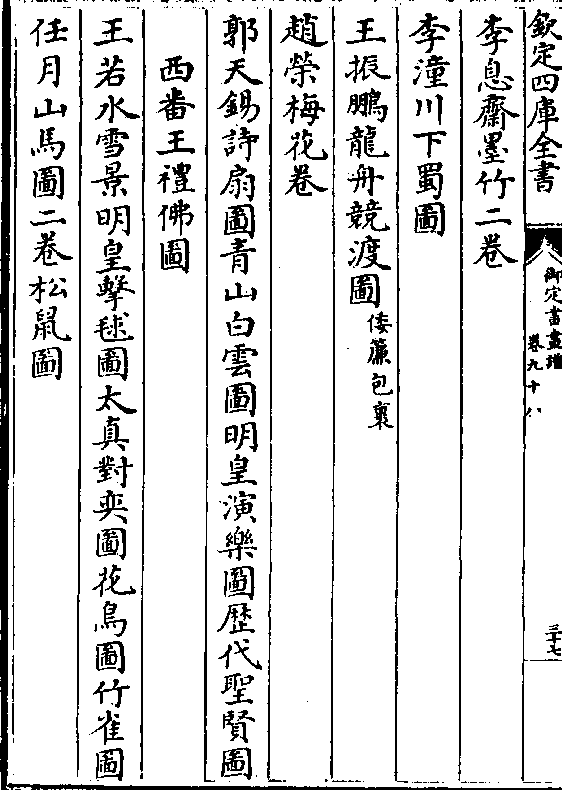 欽定四庫全書
御定書畫譜
卷九十八
三十七
李息齋墨竹二卷
李潼川下蜀圖
王振鵬龍舟競渡圖倭簾包裹
趙榮梅花卷
郭天錫詩扇圖青山白雲圖明皇演樂圖歴代聖賢圖
西番王禮佛圖
王若水雪景明皇擊毬圖太真對奕圖花鳥圖竹雀圖
任月山馬圖二卷松鼠圖